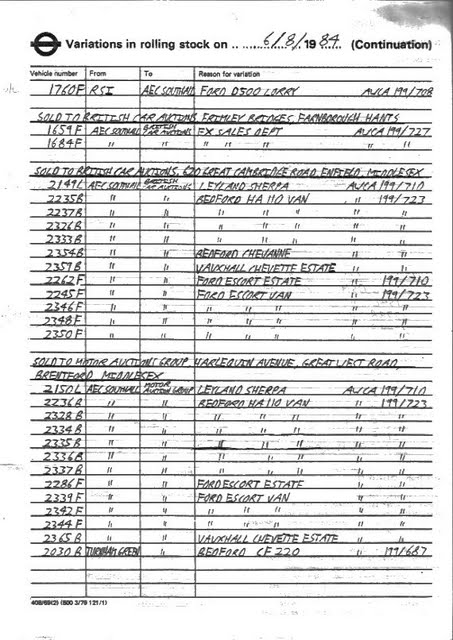 Variations in rolling stock on 6/8/1984 (Continuation)
Vehicle number From To Reason for variation
1760F RSI AEC SOUTHALL FORD D500 LORRY AWCA 199/708
SOLD TO BRITISH CAR AUCTIONS, FRIMLEY BRIDGES, FARNBOROUGH HANTS
1659F AEC SOUTHALL BRITISH CAR AUCTIONS EX SALES DEPT AWCA 199/727
1684F " " " " " "
SOLD TO BRITISH CAR AUCTIONS, 620 GREAT CAMBRIDGE ROAD, ENFIELD, MIDDLESEX
2149L AEC SOUTHALL BRITISH CAR AUCTIONS LEYLAND SHERPA AWCA 199/710
2235B " " BEDFORD HA 110 VAN " 199/723
2237B " " " " " " "
2326B " " " " " " "
2333B " " " " " " "
2354B " " BEDFORD CHEVANNE " "
2359B " " VAUXHALL CHEVETTE ESTATE " "
2262F " " FORD ESCORT ESTATE " 199/710
2245F " " FORD ESCORT VAN " 199/723
2346F " " " " " " "
2348F " " " " " " "
2350F " " " " " " "
SOLD TO MOTOR AUCTIONS GROUP, HARLEQUIN AVENUE, GREAT WEST ROAD,
BRENTFORD MIDDLESEX
2150L AEC SOUTHALL MOTOR AUCTION GROUP LEYLAND SHERPA AWCA 199/710
2236B " " BEDFORD HA 110 VAN " 199/723
2328B " " " " " " "
2334B " " " " " " "
2335B " " " " " " "
2336B " " " " " " "
2337B " " " " " " "
2286F " " FORD ESCORT ESTATE " "
2339F " " FORD ESCORT VAN " "
2342F " " " " " " "
2344F " " " " " " "
2365B " " VAUXHALL CHEVETTE ESTATE " "
2030B TURNHAM GREEN " BEDFORD CF 220 " 199/687
408/69(2) (800 3/79 121/1)